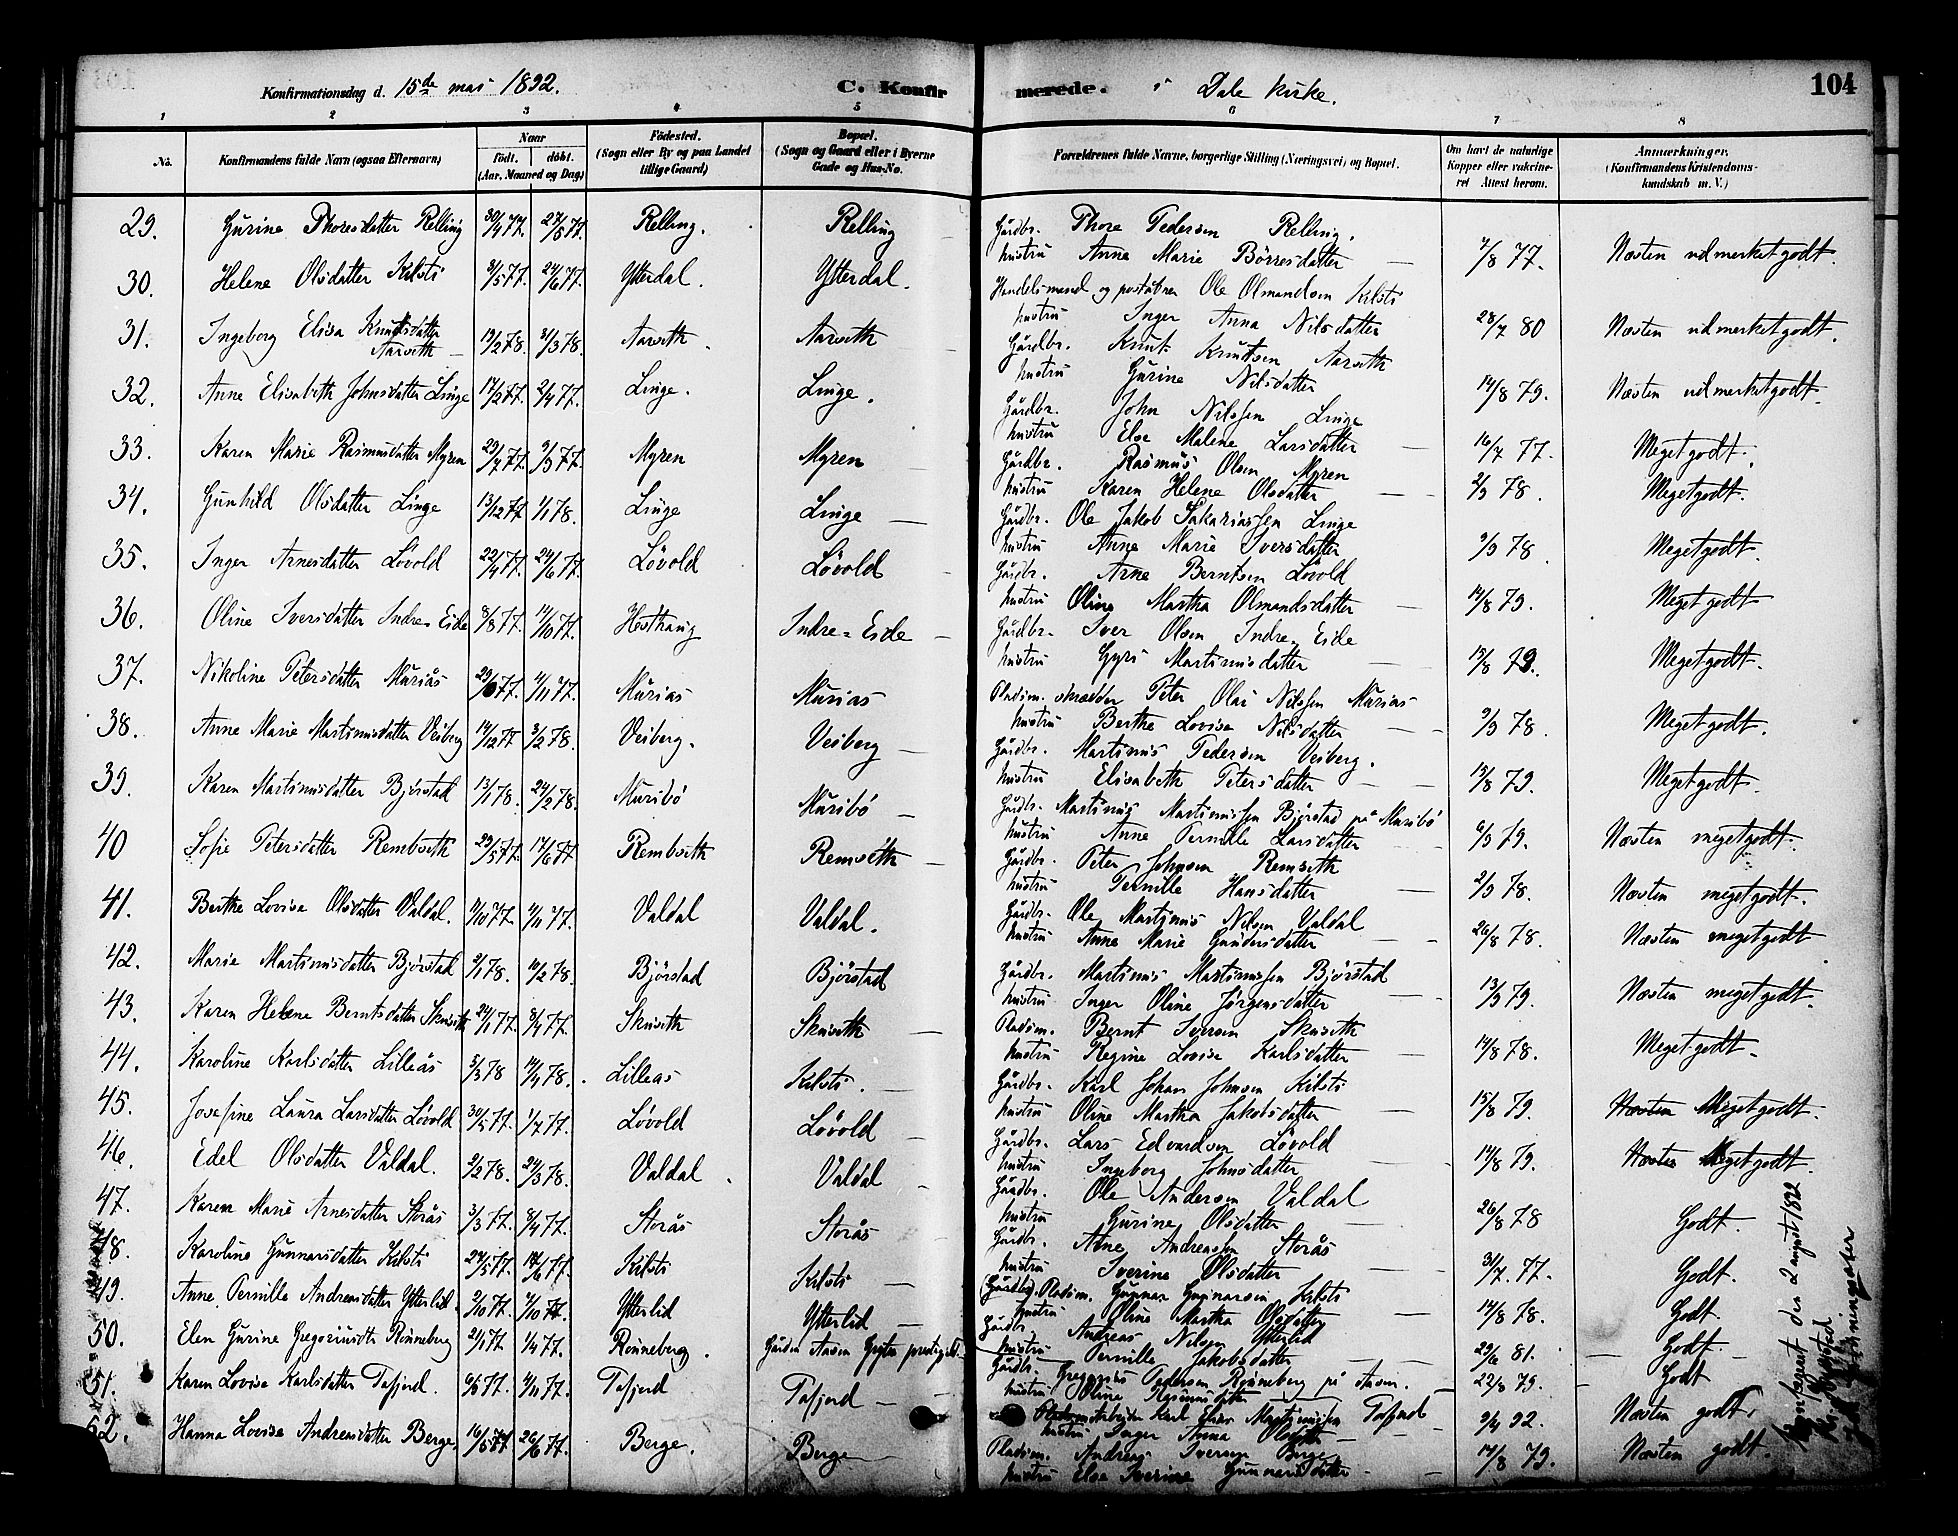 Konfirmationsdag d. 15de mai 1892. C. Konfirmerede. i Dale kirke. 104
1 2 3 4 5 6 7 8
No. Konfirmandens fulde Navn (ogsaa Efternavn) Naar födt. döbt. (Aar, Maaned og Dag) Födested. (Sogn eller By og paa Landet tillige Gaard) Bopæl. (Sogn og Gaard eller i Byerne Gade og Hus-No. Forældrenes fulde Navne, borgerlige Stilling (Næringsvei) og Bopæl. Om havt de naturlige Kopper eller vakcineret Attest herom. Anmærkninger. (Konfirmandens Kristendomskundskab m. V.)
29. Gurine Thoresdatter Relling 30/4 77. 27/5 77. Relling. Relling Gårdbr. Thore Pedersen Relling.
hustru Anne Marie Börresdatter — 7/8 77. Næsten udmerket godt.
30. Helene Olsdatter Kilsti 3/5 77. 24/6 77. Ytterdal. Ytterdal. Handelsmand og postaabner Ole Olmandsen Kilsti
hustru Inger Anna Nilsdatter 28/7 80 Næsten udmerket godt.
31. Ingeborg Elisa Knutsdatter Aarseth 19/2 78. 31/3 78. Aarseth. Aarseth Gårdbr. Knut Knutsen Aarseth
hustru Gurine Nilsdatter 14/8 79. Næsten udmerket godt.
32. Anne Elisabeth Johnsdatter Linge 17/2 77. 2/4 77. Linge. Linge. Gårdbr. John Nilssen Linge
hustru Else Malene Larsdatter — 16/7 77. Meget godt.
33. Karen Marie Rasmusdatter Myren 29/7 77. 9/9 77. Myren Myren Gårdbr. Rasmus Olsen Myren
hustru Karen Helene Olsdatter — 2/9 78. Meget godt.
34. Gunhild Olsdatter Linge 13/12 77 1/1 78. Linge Linge — Gårdbr. Ole Jakob Sakariassen Linge
hustru Anne Marie Iversdatter 9/9 78. Meget godt.
35. Inger Arnesdatter Lövold 22/4 77. 24/6 77. Lövold Lövold Gårdbr. Arne Berntsen Lövold
hustru Oline Martha Olmandsdatter — 14/8 79. Meget godt
36. Oline Iversdatter Indre-Eide 8/8 77. 14/10 77. Hesthaug Indre-Eide — Gårdbr. Iver Olsen Indre Eide
hustru Gyri Martinusdatter — 15/8 79. Meget godt.
37. Nikoline Petersdatter Muriås 29/9 77. 4/11 77. Murias Murias Pladsm. skrædder Peter Olai Nilssen Murias
hustru Berthe Lovise Nilsdatter — 9/9 78. Meget godt.
38. Anne Marie Martinusdatter Veiberg 14/12 77 3/2 78. Veiberg. Veiberg — Gårdbr. Martinus Pedersen Veiberg.
hustru Elisabeth Petersdatter — 15/8 79. Meget godt.
39. Karen Martinusdatter Björstad 13/1 78. 24/2 78. Muribö Muribö — Gårdbr. Martinus Martinussen Björstad på Muribö
hustru Anne Pernille Larsdatter — 6/9 79. Næsten meget godt.
40 Sofie Petersdatter Rembseth 29/5 77. 17/6 77 Rembseth Remseth — Gårdbr. Peter Johnsen Remseth
hustru Pernille Hansdatter — 2/9 78. Næsten meget godt.
41. Berthe Lovise Olsdatter Valdal. 9/10 77. 11/11 77. Valdal Valdal. Gårdbr. Ole Martinus Nilsen Valdal
hustru Anne Marie Gundersdatter — 26/8 78. Næsten meget godt
42. Marie Martinusdatter Björstad 9/1 78. 10/2 78. Björstad Björstad Gårdbr. Martinus Martinussen Björstad
hustru Inger Oline Jørgensdatter 13/9 79. Næsten meget godt.
43. Karen Helene Berntsdatter Skuseth 24/1 77. 8/4 77. Skuseth Skuseth — Pladsm. Bernt Iversen Skuseth
hustru Regine Lovise Karlsdatter — 14/8 78. Meget godt.
44. Karoline Karlsdatter Lilleås 3/3 78 14/4 78. Lilleas Kilsti. Gårdbr. Karl Johan Johnsen Kilsti
hustru Oline Martha Jakobsdatter — 15/8 79. Næsten Meget godt.
45. Josefine Laura Larsdatter Lövold 30/5 77. 1/7 77. Lövold Lövold — Gårdbr. Lars Edvardsen Lövold
hustru Ingeborg Johnsdatter — 14/8 79. Næsten Meget godt.
46. Edel Olsdatter Valdal. 2/2 78. 24/3 78. Valdal. Valdal — Gårdbr. Ole Andersen Valdal
hustru Gurine Olsdatter — 26/8 78 Godt.
47. Karen Marie Arnesdatter Storås 3/3 77. 8/4 77. Storås Storås — Gårdbr. Arne Andreassen Storås
hustru Iverine Olsdatter — 31/7 77. Godt.
48. Karoline Gunnarsdatter Kilsti 24/5 77. 17/6 77. Kilsti Kilsti — (Gårdbr.) Pladsm. Gunnar Gunnarsen Kilsti
hustru Oline Martha Olsdatter 14/8 78. Godt.
49. Anne Pernille Andreasdatter Ytterlid. 2/10 77. 4/10 77. Ytterlid Ytterlid — Gårdbr. Andreas Nilsen Ytterlid
hustru Pernille Jakobsdatter — 29/6 81. Godt —
50. Elen Gurine Gregoriusdtr Rönneberg 21/1 77. 1/4 77. Rönneberg. Gården Aasen Gryten prestegjeld. Gårdbr. Gregorius Pedersen Rønneberg på Aasen.
hustru Oline Rasmusdatter 22/8 79. Godt
51. Karen Lovise Karlsdatter Tafjord. 6/9 77. 4/11 77. Tafjord Tafjord — Karl Martinussen Tafjord
hustru Inger Anna — 9/4 92. Næsten godt.
52. Hanna Lovise Andreasdatter Berge. 16/5 77 26/6 77. Berge. Berge — Pladsm. Andreas Iversen Berge
hustru Else Iverine Gunnersdatter — 14/8 79. Næsten godt.
Konfereret den 2 august 1892